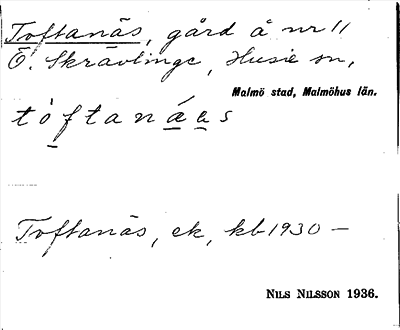 Toftanäs, gård å nr 11
Ö. Skrävlinge, Husie sn,
Malmö stad, Malmöhus län.
tòftanáes
Toftanäs, ek, kb 1930 —
NILS NILSSON 1936.